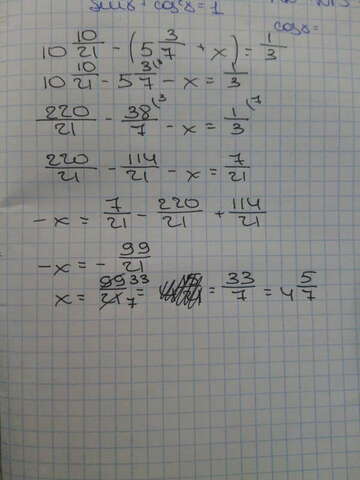 sin²x + cos²x = 1
cosx =
10 10/21 - (5 3/7 + x) = 1/3
10 10/21 - 5 3/7 (3 - x = 1/3
220/21 - 38/7 (3 - x = 1/3 (7
220/21 - 114/21 - x = 7/21
-x = 7/21 - 220/21 + 114/21
-x = - 99/21
x = 99 33/21 7 = = 33/7 = 4 5/7